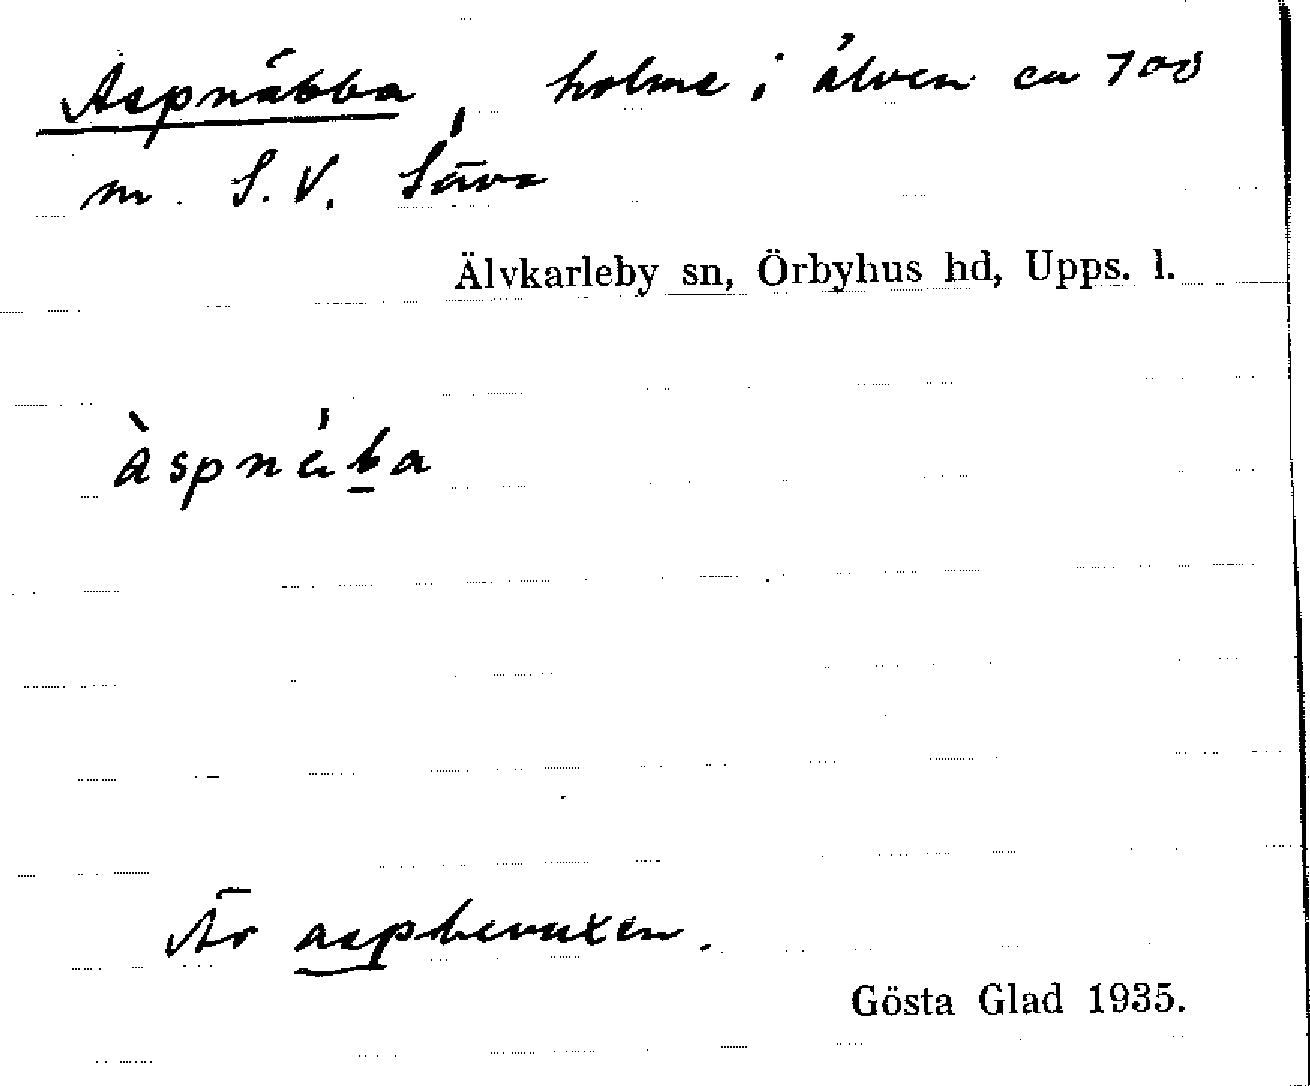 Aspnäbba, holme i älven ca 700
m. S.V. Säva
Älvkarleby sn, Örbyhus hd, Upps. l.
àspnä́ba
Är aspbevuxen.
Gösta Glad 1935.